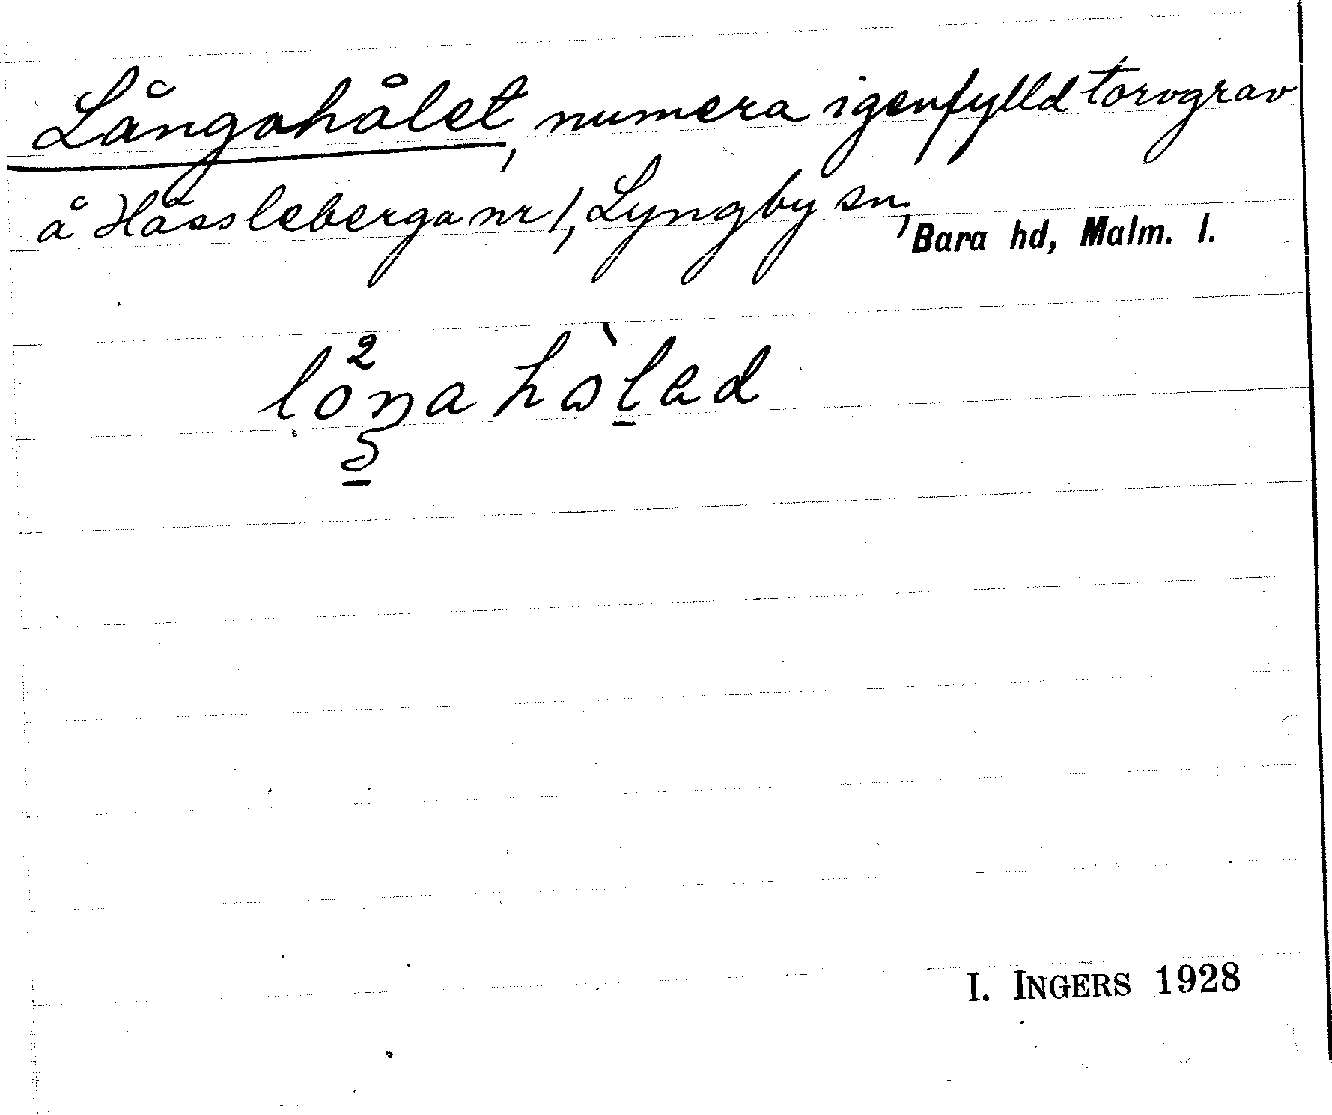 Långahålet, numera igenfylld torvgrav
å Hassleberga nr 1, Lyngby sn, Bara hd, Malm. l.
I. INGERS 1928